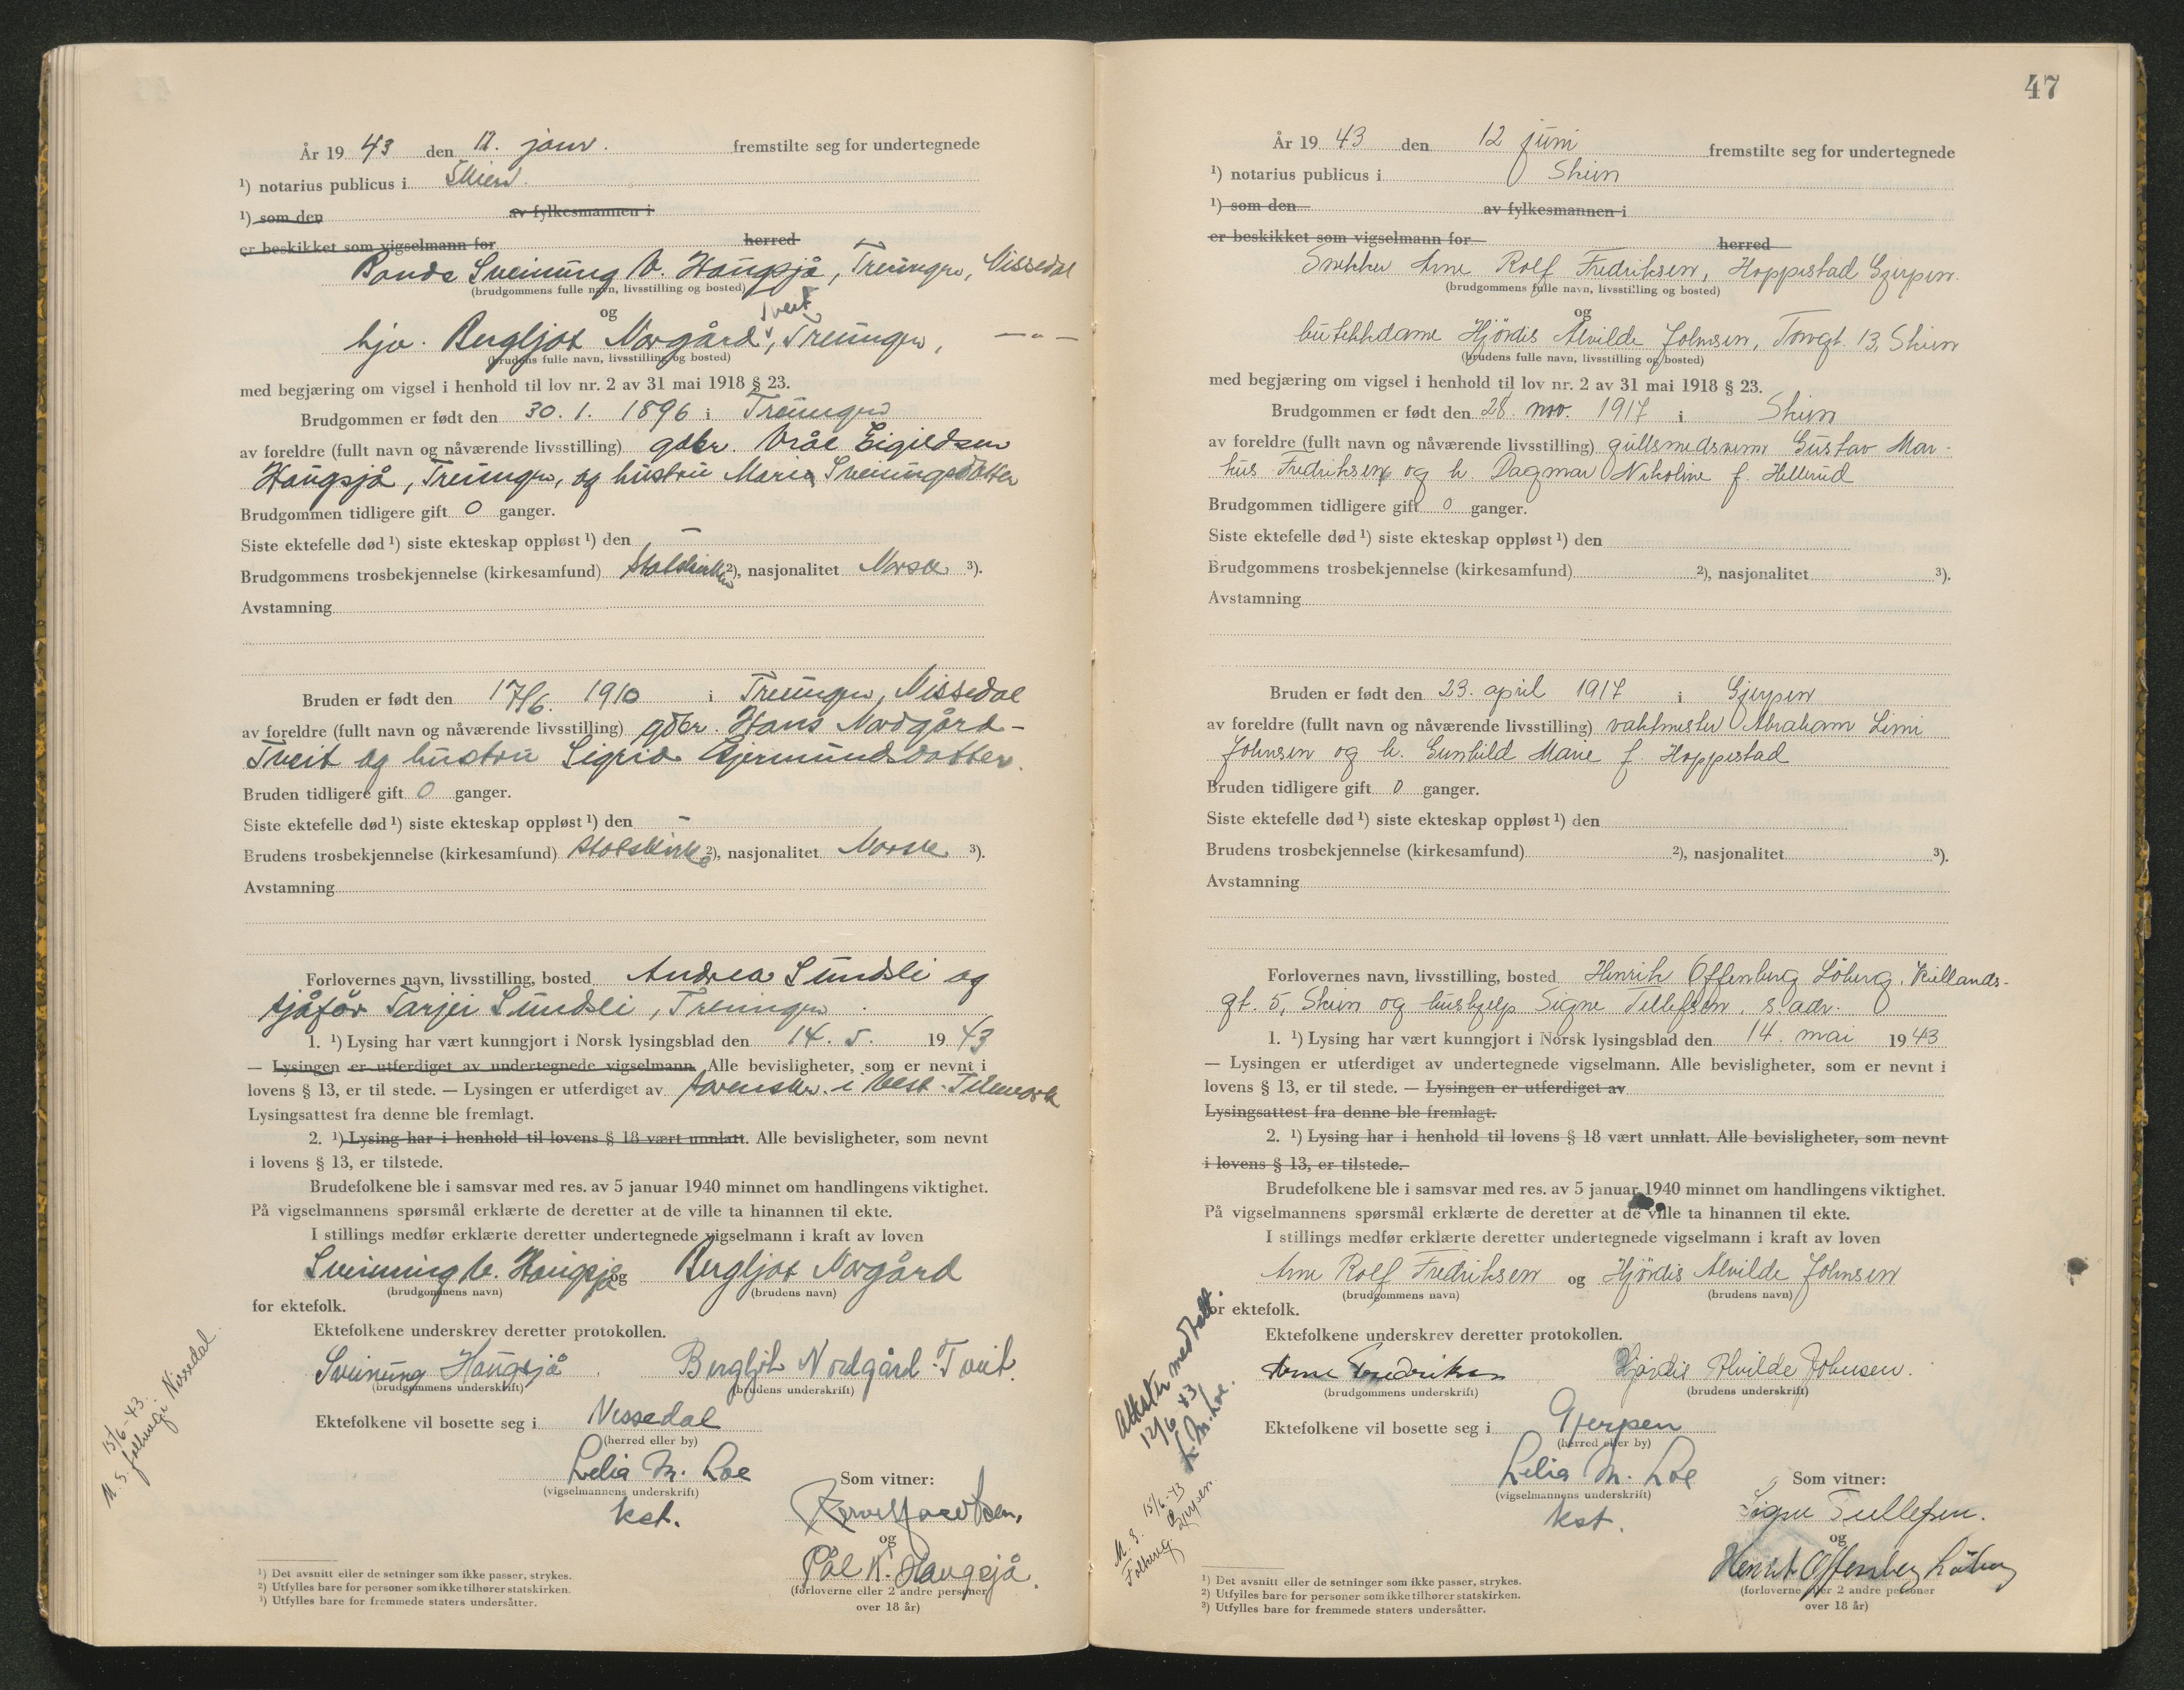 År 19 43 den 12. fremstilte seg for undertegnede
¹) notarius publicus i Skien.
¹) som den av fylkesmannen i
er beskikket som vigselmann for herred
Bonde Sveinung V. Haugsjå, Treungen, Nissedal
(brudgommens fulle navn, livsstilling og bosted)
og
Tveit
hjv. Bergljot Norgård, Treungen, — " —
(brudens fulle navn, livsstilling og bosted)
med begjæring om vigsel i henhold til lov nr. 2 av 31 mai 1918 § 23.
Brudgommen er født den 30. 1. 1896 i Treungen
av foreldre (fullt navn og nåværende livsstilling) gdbr. Vrål Eigildsen
Haugsjå, Treungen, og hustru Maria Sveinungsdotter
Brudgommen tidligere gift 0 ganger.
Siste ektefelle død ¹) siste ekteskap oppløst ¹) den –
Brudgommens trosbekjennelse (kirkesamfund) Statskirken ²), nasjonalitet Norsk ³).
Avstamning
Bruden er født den 17/6. 1910 i Treungen, Nissedal
av foreldre (fullt navn og nåværende livsstilling) gdbr. Hans Nordgård-
Tveit og hustru Sigrid Gjermundsdotter.
Bruden tidligere gift 0 ganger.
Siste ektefelle død ¹) siste ekteskap oppløst ¹) den –
Brudens trosbekjennelse (kirkesamfund) Statskirke ²), nasjonalitet Norsk ³).
Avstamning
Forlovernes navn, livsstilling, bosted Andrea Sundsli og
sjåfør Tarjei Sundsli, Treungen
1. ¹) Lysing har vært kunngjort i Norsk lysingsblad den 14. 5. 19 43
— Lysingen er utferdiget av undertegnede vigselmann. Alle bevisligheter, som er nevnt i
lovens § 13, er til stede. — Lysingen er utferdiget av sorenskr. i Vest-Telemark
Lysingsattest fra denne ble fremlagt.
2. ¹) Lysing har i henhold til lovens § 18 vært unnlatt. Alle bevisligheter, som nevnt
i lovens § 13, er tilstede.
Brudefolkene ble i samsvar med res. av 5 januar 1940 minnet om handlingens viktighet.
På vigselmannens spørsmål erklærte de deretter at de ville ta hinannen til ekte.
I stillings medfør erklærte deretter undertegnede vigselmann i kraft av loven
Sveinung V. Haugsjå og Bergljot Norgård
(brudgommens navn) (brudens navn)
for ektefolk.
Ektefolkene underskrev deretter protokollen.
Sveinung Haugsjå. Bergljot Nordgård-Tveit.
(brudgommens underskrift) (brudens underskrift)
Ektefolkene vil bosette seg i Nissedal
(herred eller by)
Lelia M. Loe
(vigselmannens underskrift)
kst.
Som vitner:
og
Pål K. Haugsjå.
(forloverne eller 2 andre personer
over 18 år)
M. S. 15/6-43.
folkereg. i Nissedal.
¹) Det avsnitt eller de setninger som ikke passer, strykes.
²) Utfylles bare for personer som ikke tilhører statskirken.
³) Utfylles bare for fremmede staters undersåtter.
47
År 19 43 den 12 juni fremstilte seg for undertegnede
¹) notarius publicus i Skien
¹) som den av fylkesmannen i
er beskikket som vigselmann for herred
Snekker Arne Rolf Fredriksen, Hoppestad Gjerpen.
(brudgommens fulle navn, livsstilling og bosted)
og
butikkdame Hjördis Alvilde Johnsen, Torvgt. 13, Skien
(brudens fulle navn, livsstilling og bosted)
med begjæring om vigsel i henhold til lov nr. 2 av 31 mai 1918 § 23.
Brudgommen er født den 28. nov. 1917 i Skien
av foreldre (fullt navn og nåværende livsstilling) gullsmedsvenn Gustav Mar-
kus Fredriksen og h. Dagmar Nikoline f. Hellerud
Brudgommen tidligere gift 0 ganger.
Siste ektefelle død ¹) siste ekteskap oppløst ¹) den
Brudgommens trosbekjennelse (kirkesamfund) ²), nasjonalitet ³).
Avstamning
Bruden er født den 23. april 1917 i Gjerpen
av foreldre (fullt navn og nåværende livsstilling) vaktmester Abraham Limi
Johnsen og h. Gunhild Marie f. Hoppestad
Bruden tidligere gift 0 ganger.
Siste ektefelle død ¹) siste ekteskap oppløst ¹) den
Brudens trosbekjennelse (kirkesamfund) ²), nasjonalitet ³).
Avstamning
Forlovernes navn, livsstilling, bosted Henrik Offenberg Löberg, Kiellands-
gt. 5, Skien og hushjelp Signe Tellefsen, s. adr.
1. ¹) Lysing har vært kunngjort i Norsk lysingsblad den 14. mai 19 43
— Lysingen er utferdiget av undertegnede vigselmann. Alle bevisligheter, som er nevnt i
lovens § 13, er til stede. — Lysingen er utferdiget av
Lysingsattest fra denne ble fremlagt.
2. ¹) Lysing har i henhold til lovens § 18 vært unnlatt. Alle bevisligheter, som nevnt
i lovens § 13, er tilstede.
Brudefolkene ble i samsvar med res. av 5 januar 1940 minnet om handlingens viktighet.
På vigselmannens spørsmål erklærte de deretter at de ville ta hinannen til ekte.
I stillings medfør erklærte deretter undertegnede vigselmann i kraft av loven
Arne Rolf Fredriksen og Hjördis Alvilde Johnsen
(brudgommens navn) (brudens navn)
for ektefolk.
Ektefolkene underskrev deretter protokollen.
Arne Fredriksen Hjördis Alvilde Johnsen.
(brudgommens underskrift) (brudens underskrift)
Ektefolkene vil bosette seg i Gjerpen
(herred eller by)
Lelia M. Loe
(vigselmannens underskrift)
kst.
Som vitner:
Signe Tellefsen.
og
Henrik Offenberg Löberg
(forloverne eller 2 andre personer
over 18 år)
Attester medtatt.
12/6 43
L. M. Loe.
M. S. 15/6-43
Folkereg. Gjerpen
¹) Det avsnitt eller de setninger som ikke passer, strykes.
²) Utfylles bare for personer som ikke tilhører statskirken.
³) Utfylles bare for fremmede staters undersåtter.